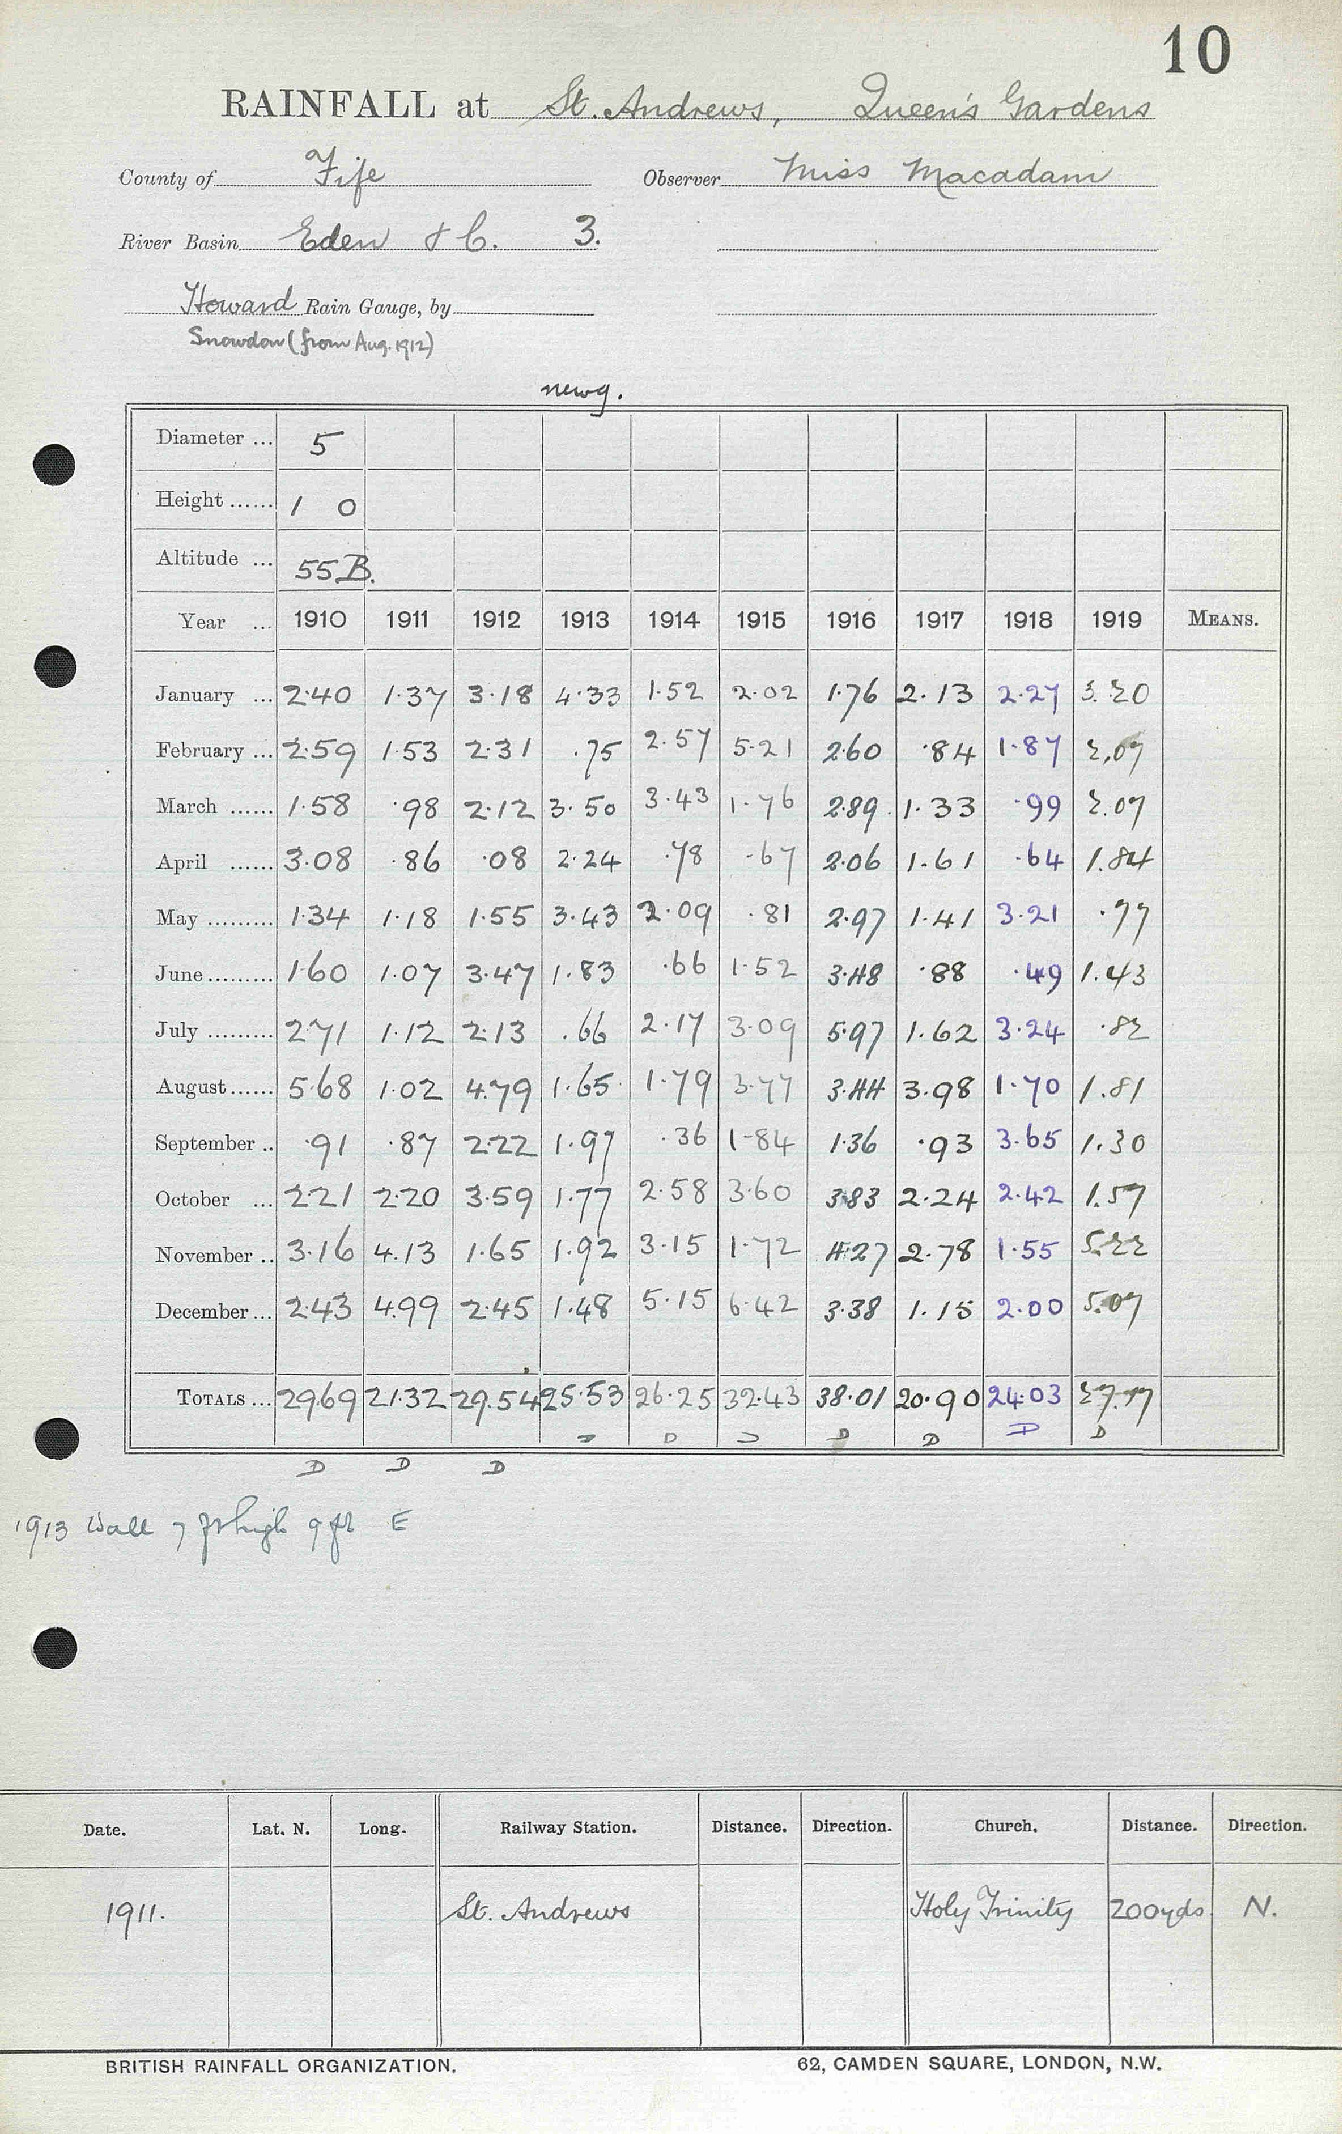 10
RAINFALL at St. Andrews, Queen's Gardens
County of Fife Observer Miss Macadam
River Basin Eden &c. 3.
Howard Rain Gauge, by
Snowdon (from Aug. 1912)
new g.
Diameter ... 5
Height ...... 1 0
Altitude ... 55 B.
Year ... 1910 1911 1912 1913 1914 1915 1916 1917 1918 1919 MEANS.
January ... 2.40 1.37 3.18 4.33 1.52 2.02 1.76 2.13 2.27 3.20
February ... 2.59 1.53 2.31 .75 2.57 5.21 2.60 .84 1.87 2.07
March ...... 1.58 .98 2.12 3.50 3.43 1.76 2.89 1.33 .99 2.07
April ...... 3.08 .86 .08 2.24 .78 .67 2.06 1.61 .64 1.84
May ......... 1.34 1.18 1.55 3.43 2.09 .81 2.97 1.41 3.21 .77
June ......... 1.60 1.07 3.47 1.83 .66 1.52 3.48 .88 .49 1.43
July ......... 2.71 1.12 2.13 .66 2.17 3.09 5.97 1.62 3.24 .82
August ...... 5.68 1.02 4.79 1.65 1.79 3.77 3.44 3.98 1.70 1.81
September .. .91 .87 2.22 1.97 .36 1.84 1.36 .93 3.65 1.30
October ... 2.21 2.20 3.59 1.77 2.58 3.60 3.83 2.24 2.42 1.57
November .. 3.16 4.13 1.65 1.92 3.15 1.72 4.27 2.78 1.55 5.22
December ... 2.43 4.99 2.45 1.48 5.15 6.42 3.38 1.15 2.00 5.07
TOTALS ... 29.69 21.32 29.54 25.53 26.25 32.43 38.01 20.90 24.03 27.17
D D D D D D D
D D D
1913 Wall 7 ft high 9 ft E
Date. Lat. N. Long. Railway Station. Distance. Direction. Church. Distance. Direction.
1911. St. Andrews Holy Trinity 200yds N.
BRITISH RAINFALL ORGANIZATION. 62, CAMDEN SQUARE, LONDON, N.W.